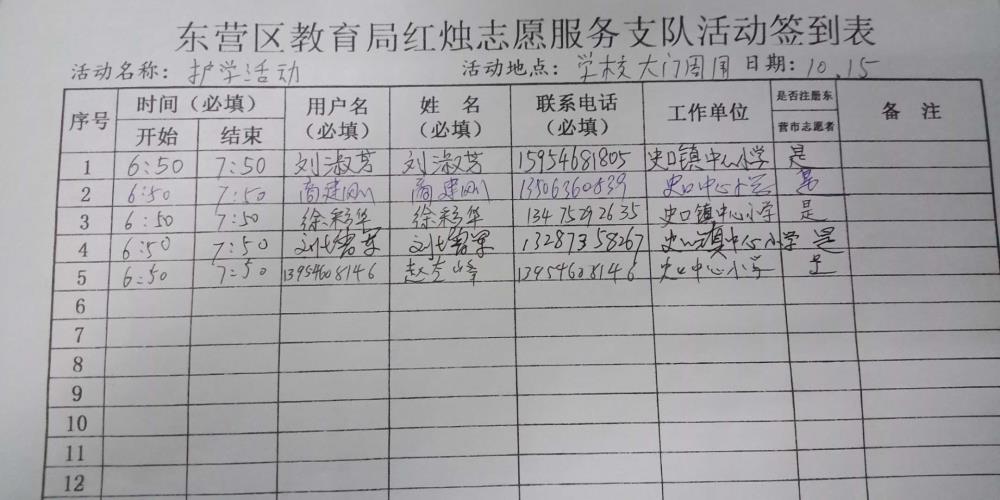 东营区教育局红烛志愿服务支队活动签到表
活动名称：护学活动 活动地点：学校大门周围 日期：10.15
序号 时间（必填） 用户名（必填） 姓 名（必填） 联系电话（必填） 工作单位 是否注册东营市志愿者 备 注
开始 结束
1 6:50 7:50 刘淑芳 刘淑芳 15954681805 史口镇中心小学 是
2 6:50 7:50 商建刚 商建刚 13506360839 史口中心小学 是
3 6:50 7:50 徐彩华 徐彩华 13475292635 史口镇中心小学 是
4 6:50 7:50 刘 军 刘 军 13287358267 史口镇中心小学 是
5 6:50 7:50 13954608146 赵 峰 13954608146 史口中心小学 是
6
7
8
9
10
11
12